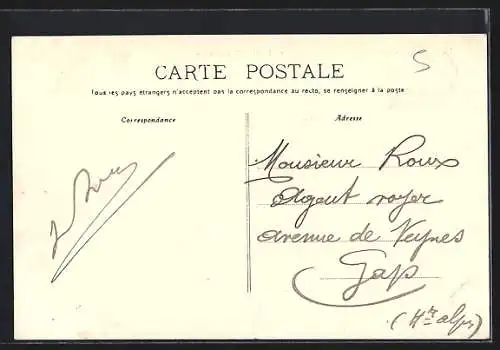 5
CARTE POSTALE
Tous les pays étrangers n'acceptent pas la correspondance au recto, se renseigner à la poste
Correspondance
Adresse
Monsieur Roux
Agent voyer
avenue de Veynes
Gap
(Htes alpes)